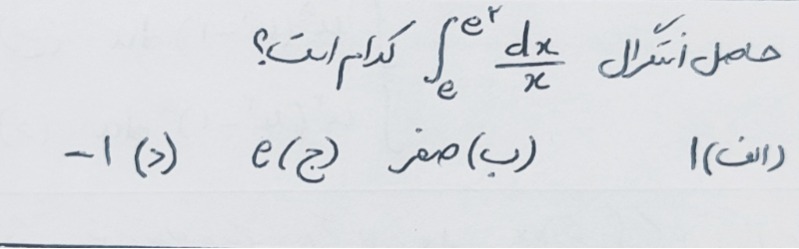 حاصل انتگرال ∫_e^{e^۲} dx/x کدام است؟
الف) ۱ ب) صفر ج) e د) ۱-